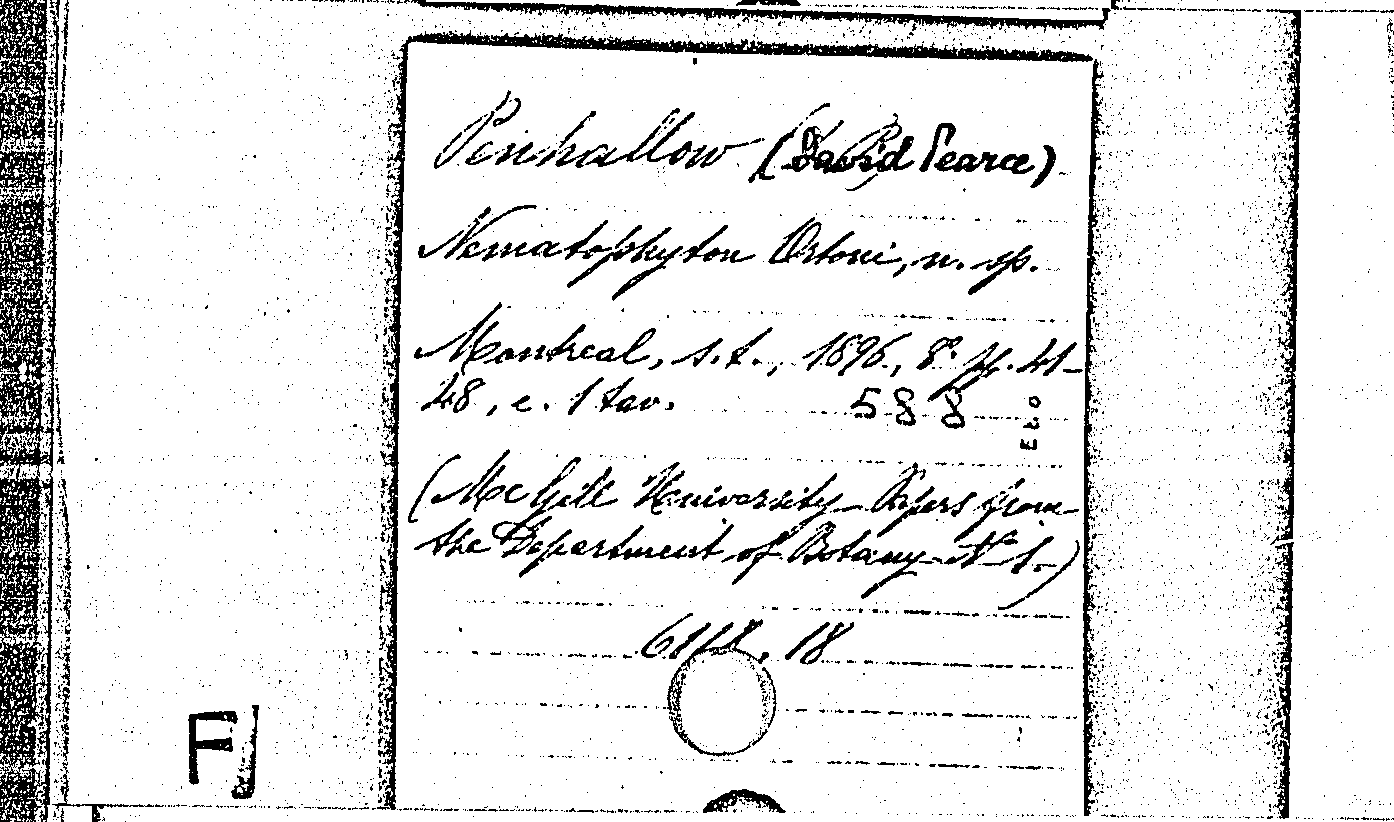 Penhallow (David Pearce)
Nematophyton Ortoni, n. sp.
Montreal, s.t., 1896, 8° pp. 41-
48, c. 1 tav. 588
(Mc Gill University - Papers from
the Department of Botany - N° 1.)
18
FJ